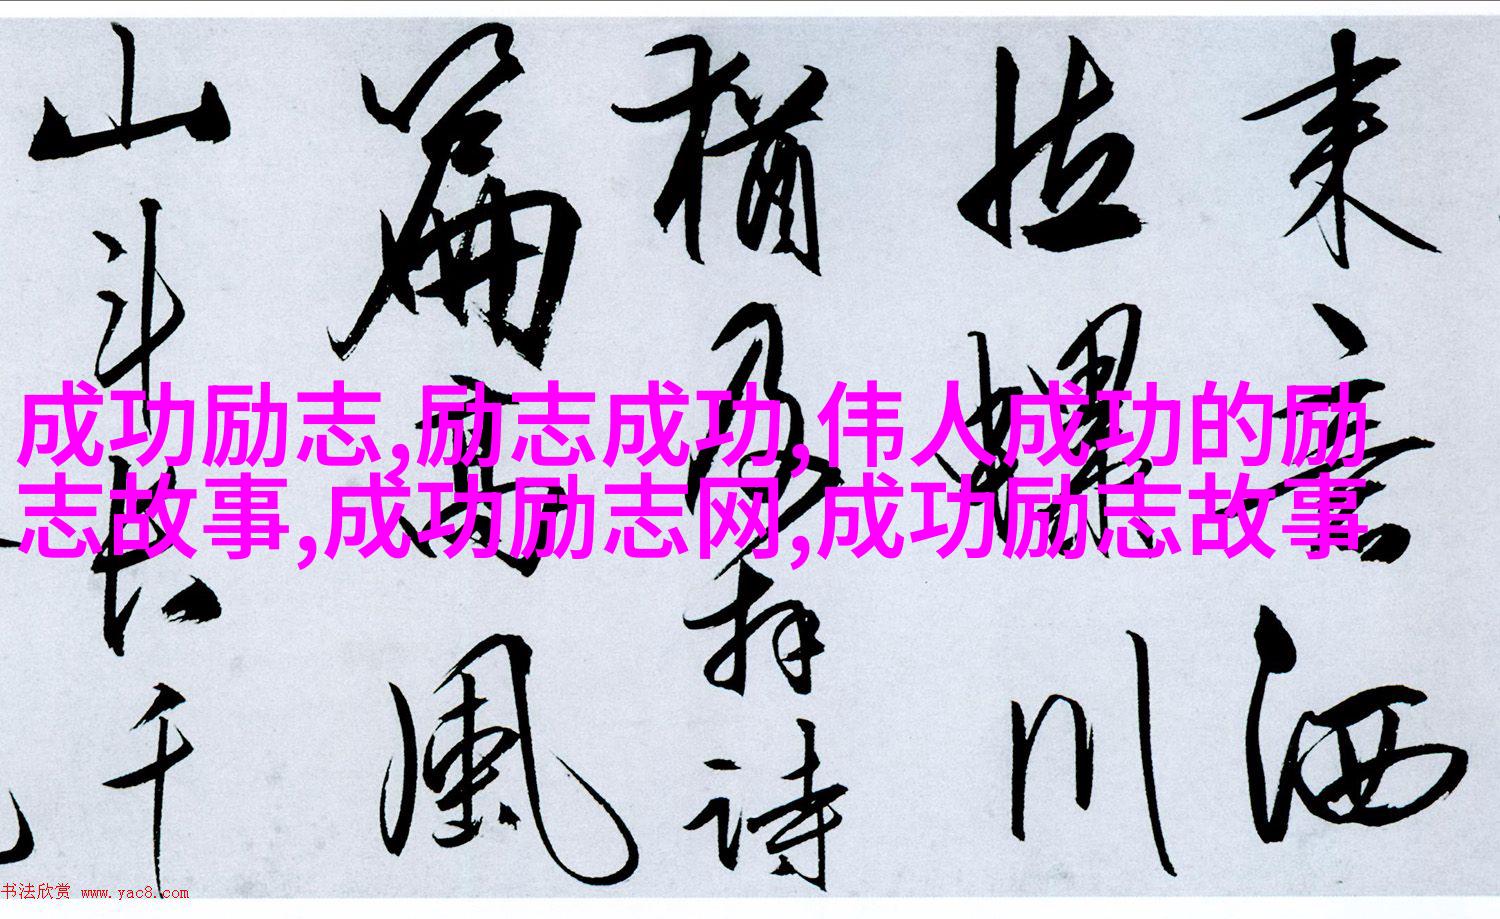 来意洒
川
猶及拜詩
篇高風
山斗長千
成功励志,励志成功,伟人成功的励
志故事,成功励志网,成功励志故事
书法欣赏 www.yac8.com